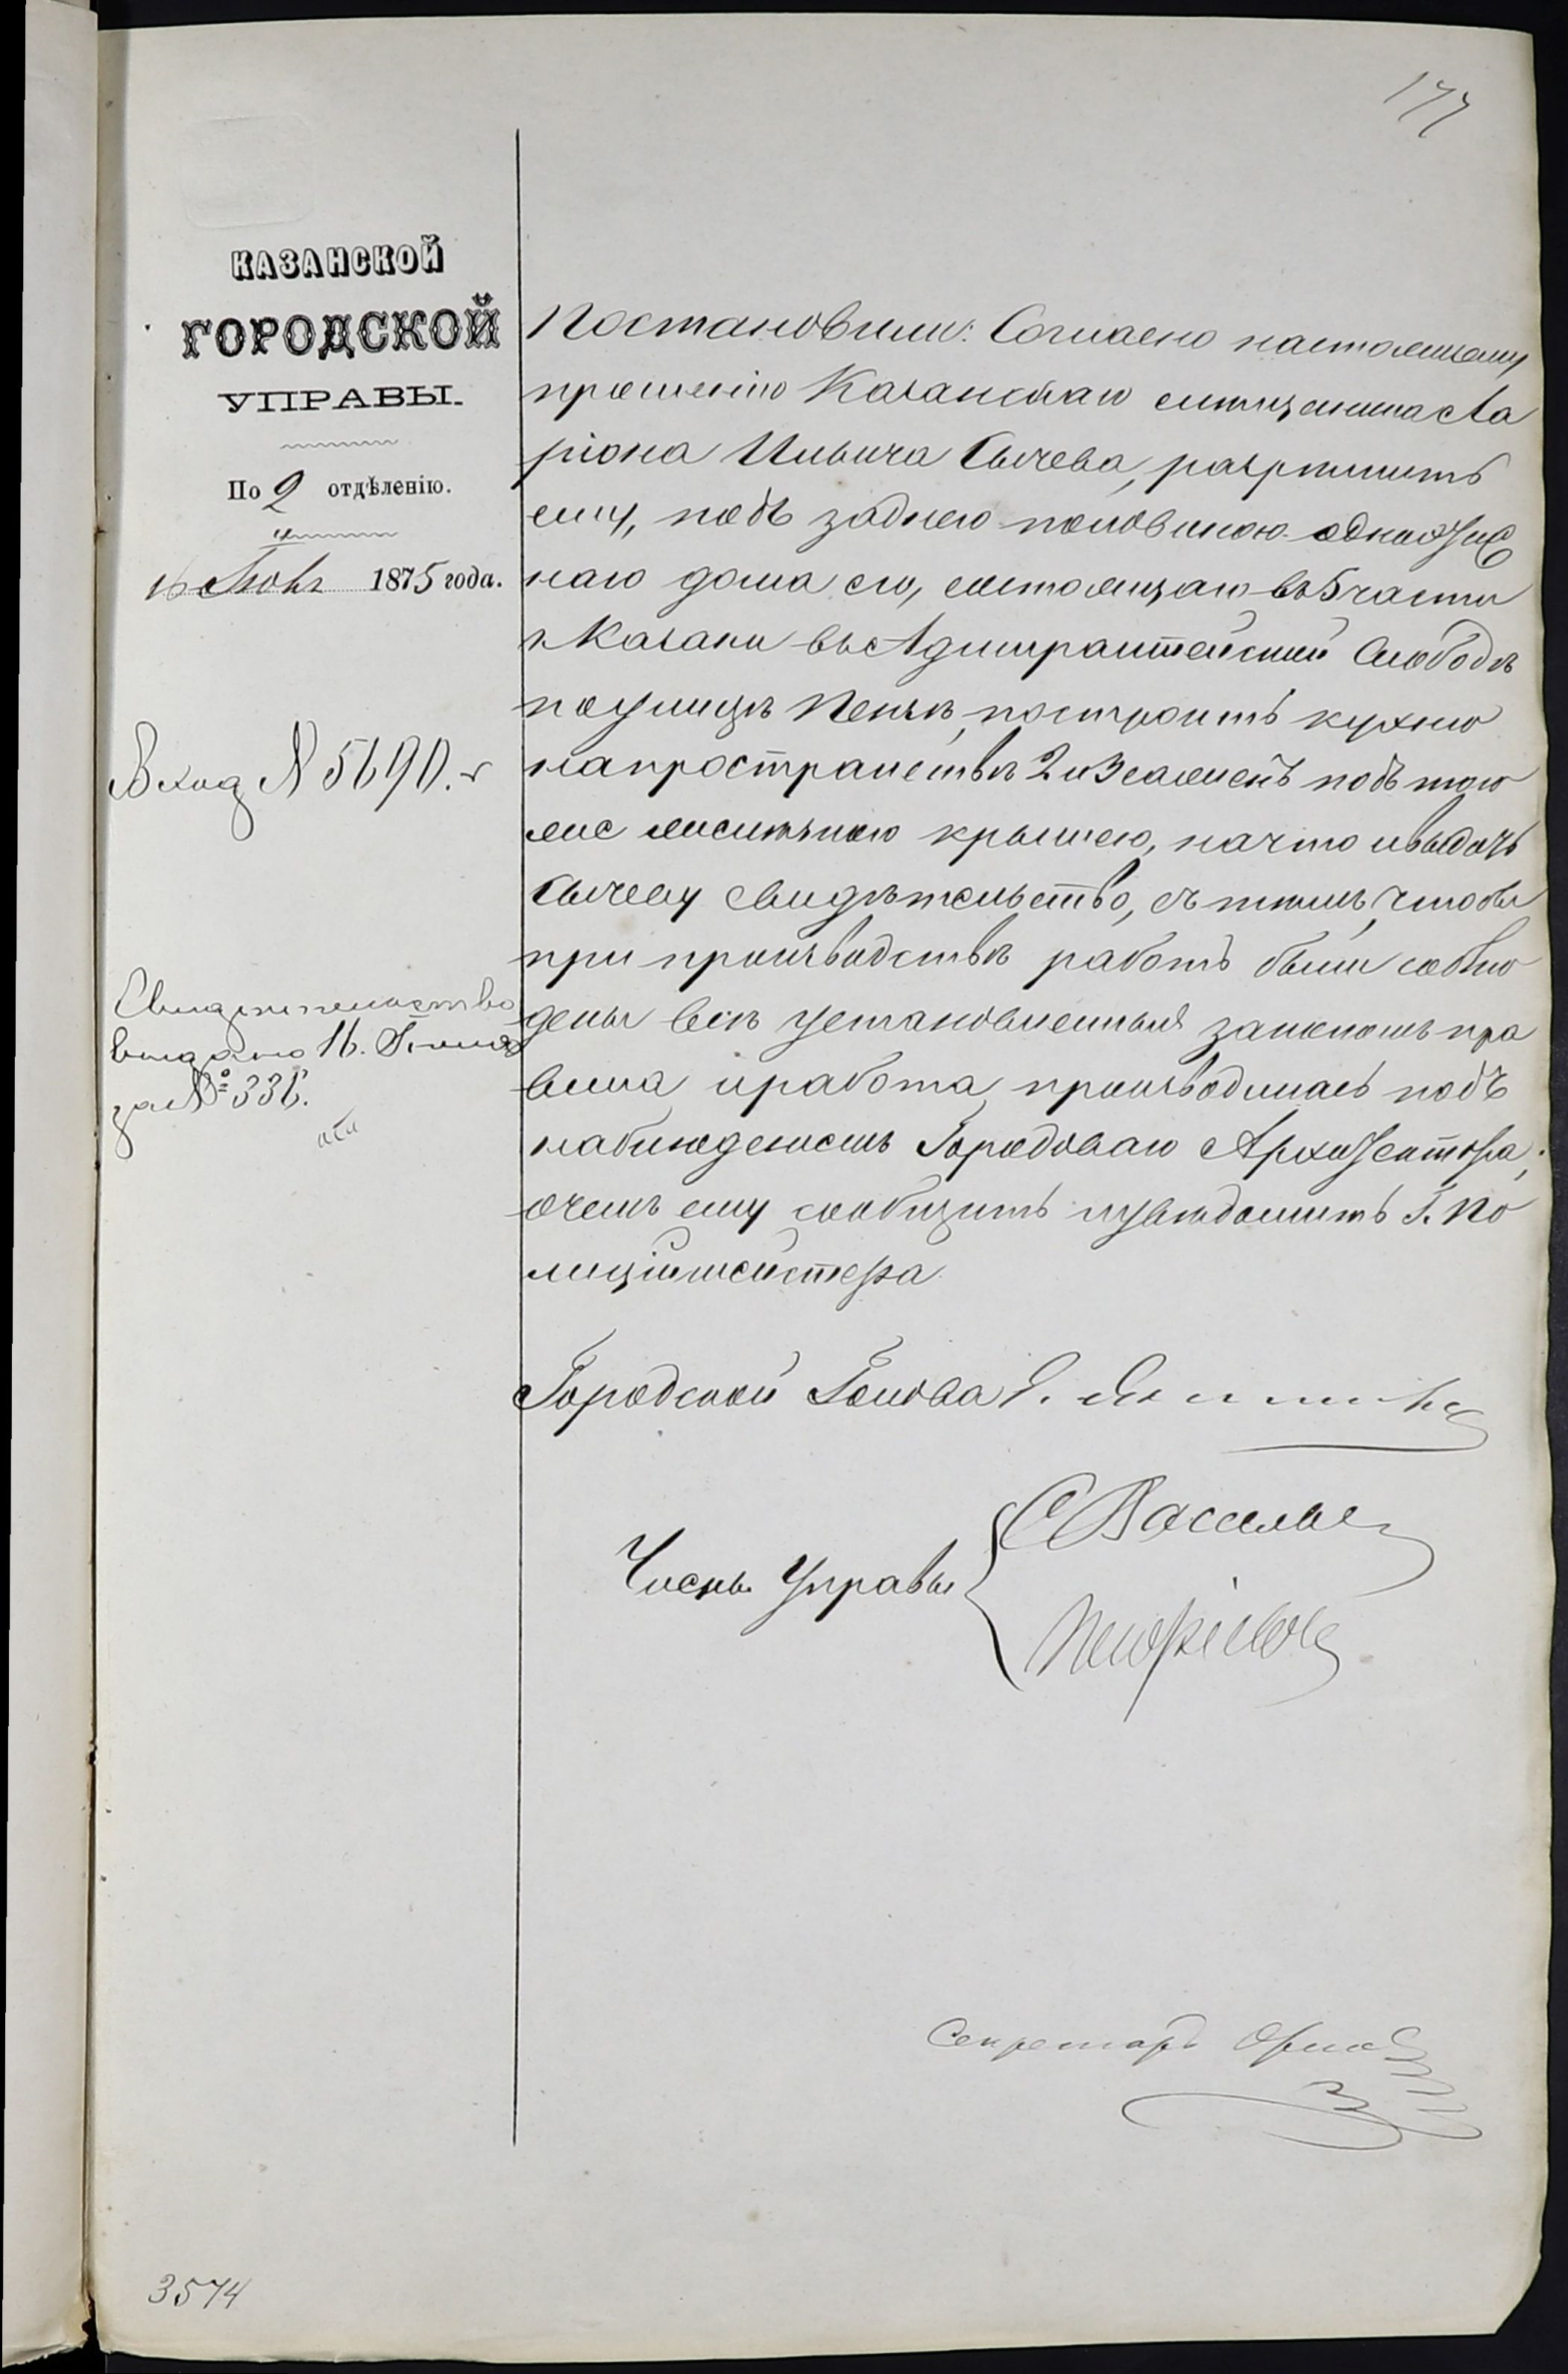 177
КАЗАНСКОЙ
ГОРОДСКОЙ
УПРАВЫ.
По 2 отдѣленію.
16 Іюня 1875 года.
Вход № 5690.
Свидѣтельство
выдано 16. Іюня
за № 336.
Постановили: Согласно настоящему
прошенію Казанскаго мѣщанина Ла
ріона Ильича Сычева, разрѣшить
ему, подъ заднею половиною одноэтаж
наго дома его, состоящаго въ 5 части
г. Казани въ Адмиралтейской Слободѣ
по улицѣ Пензѣ, построить кухню
на пространствѣ 2 и 3 саженъ подъ тою
же желѣзною крышею, на что и выдать
Сычеву свидѣтельство, съ тѣмъ, чтобы
при производствѣ работъ были соблю
дены всѣ установленныя закономъ пра
вила и работа производилась подъ
наблюденіемъ Городоваго Архитектора;
о чемъ ему сообщить и увѣдомить Г. По
лиціймейстера.
Городской Голова
Члены Управы
С Васильев
Секретарь Орлов
3574